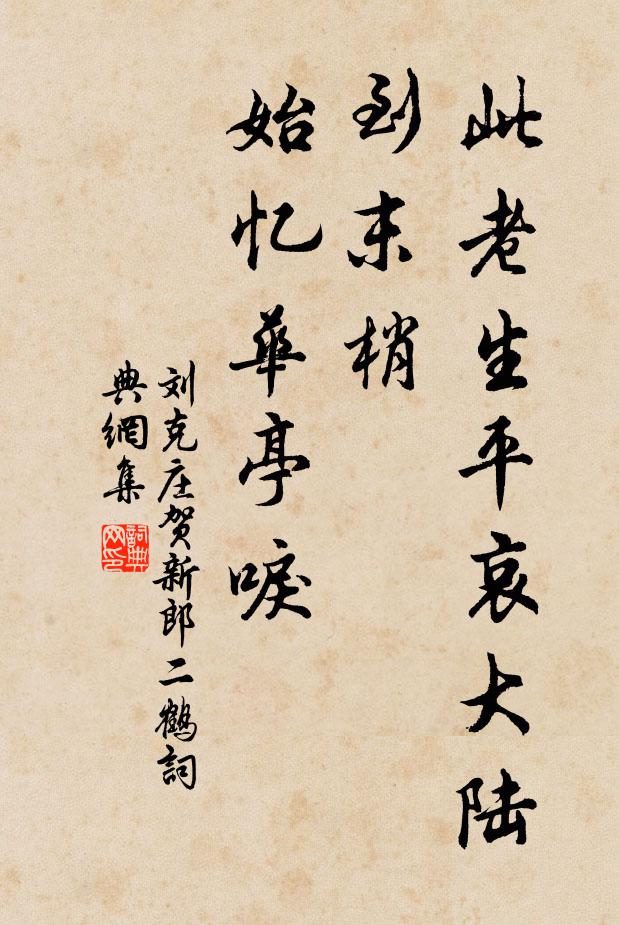 此老生平哀大陆
到末梢
始忆華亭唳
刘克庄贺新郎二鶴詞
典網集
詞典网印